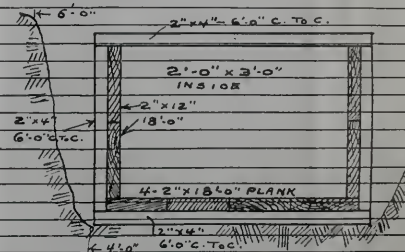 6'-0"
2"x4"- 6'-0" C. To C.
2'-0" x 3'-0"
INSIDE
2"x12"
18'-0"
2"x4"
6'-0" C. To C.
4-2"x18'-0" PLANK
2"x4"
6'-0" C. To C.
4'-0"